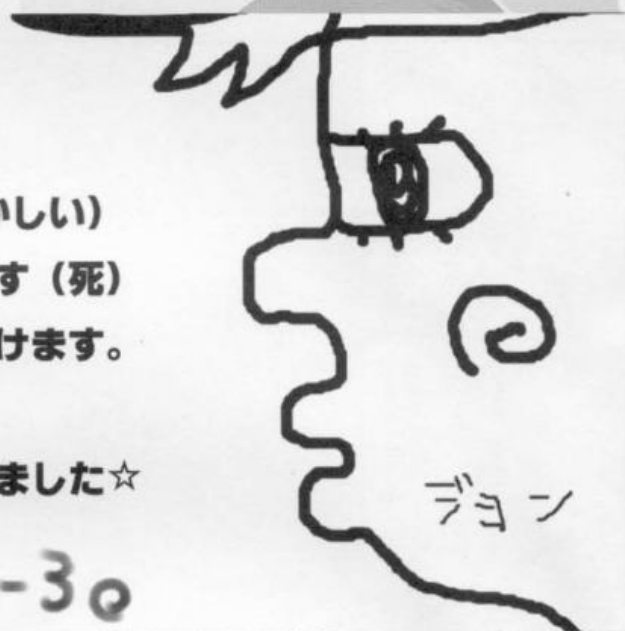 かしい）
す（死）
けます。
ました☆
-3０
ジョン